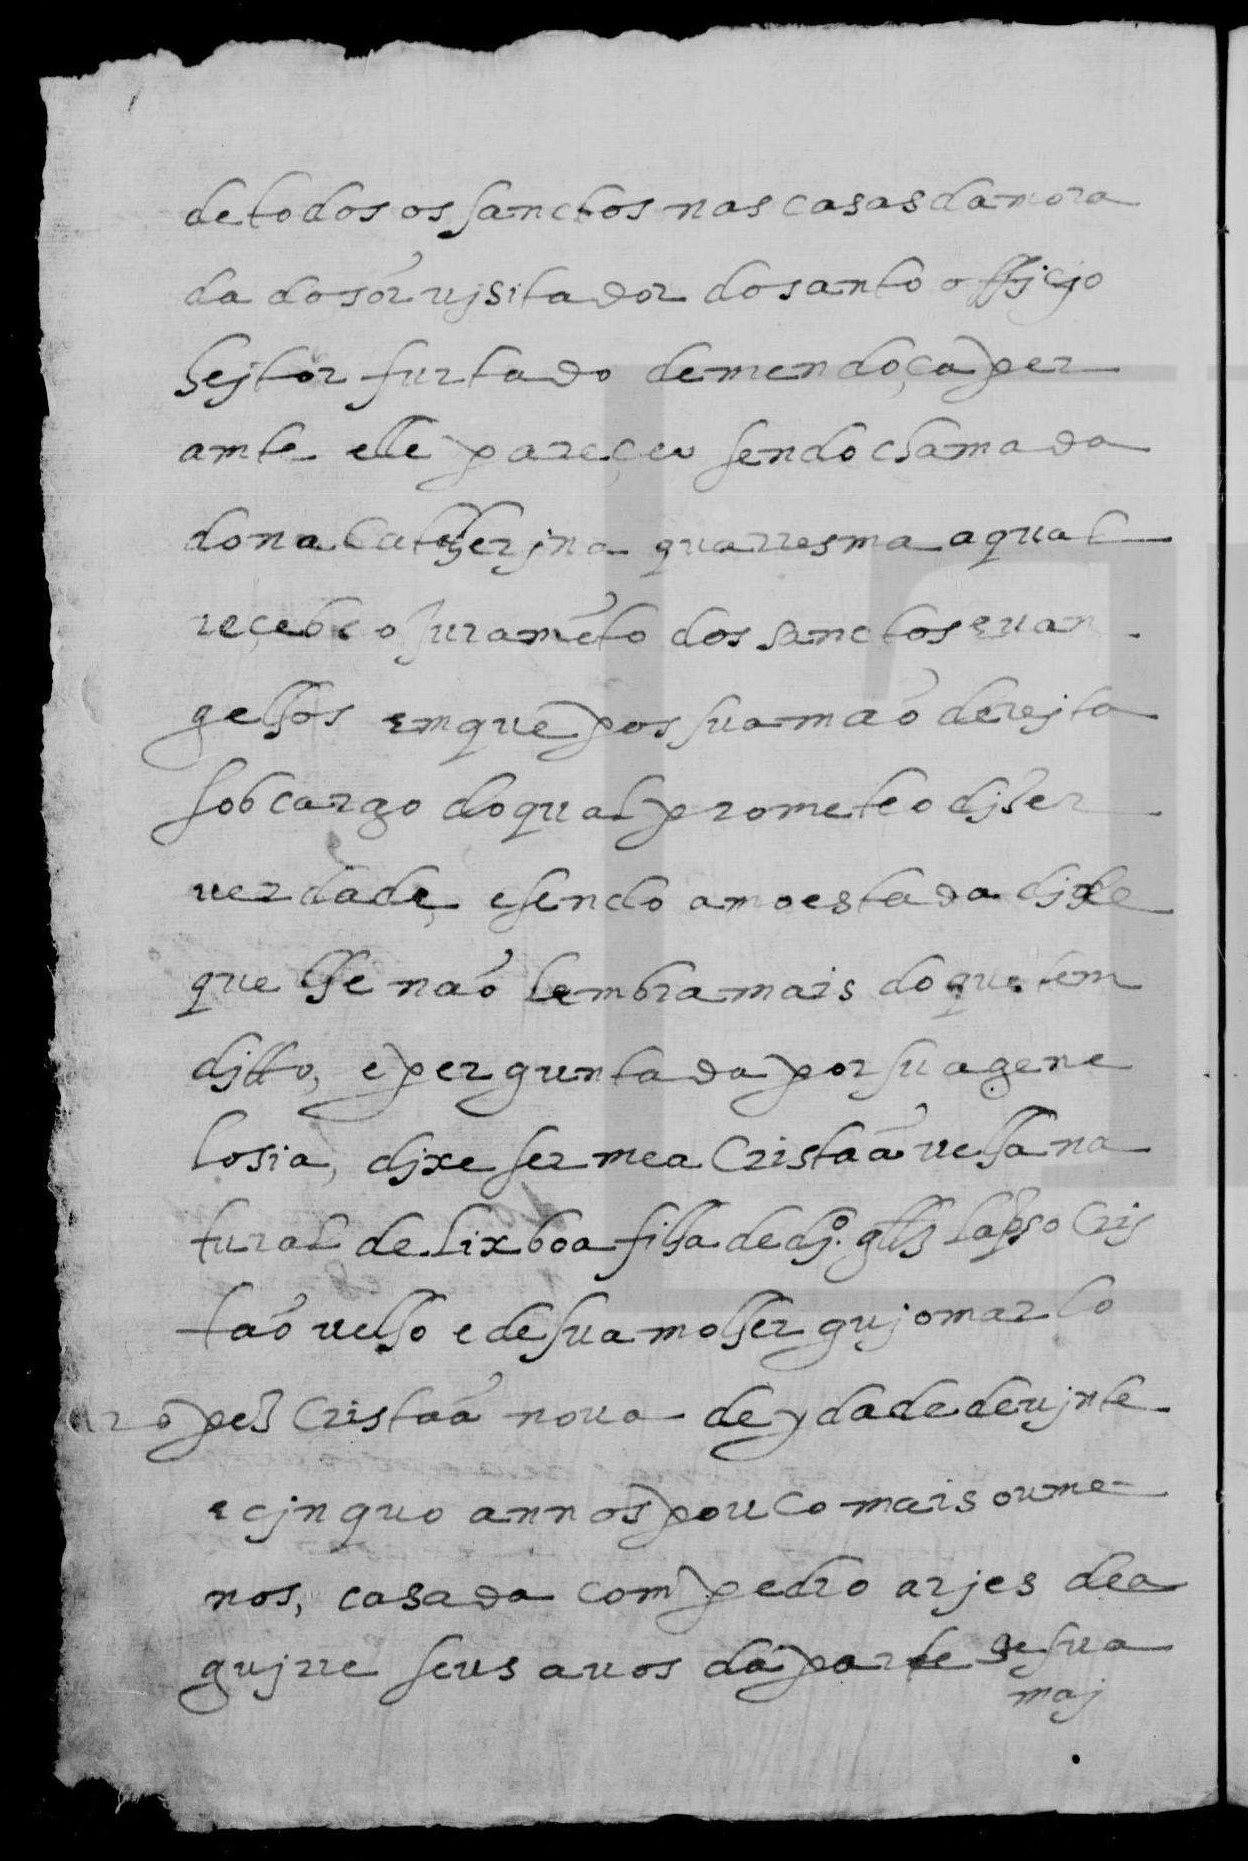 de todos os sanctos nas casas da mora
da do sõr vjsitador do santo officjo
hejtor furtado de mendoça per
ante elle pareçeu sendo chamada
dona Catherjna quarresma a qual
reçebeo juramẽto dos sanctos evan
gelhos em que pos sua mão dereita
sob cargo do qual prometeo djser
verdade, e sendo amoestada djxe
que lhe não lembra mais do que tem
ditto, e perguntada por sua gene
losia, dixe ser mea Cristaã velha na
tural de Lixboa filha de djº. glz̃ Cris
tão velho e de sua molher gujomar lo
pez Cristaã nova de ydade de vjnte
e cjnquo annos pouco mais ou me
nos, casada com pedro arjes de a
gujrre seus avos da parte de sua
maj